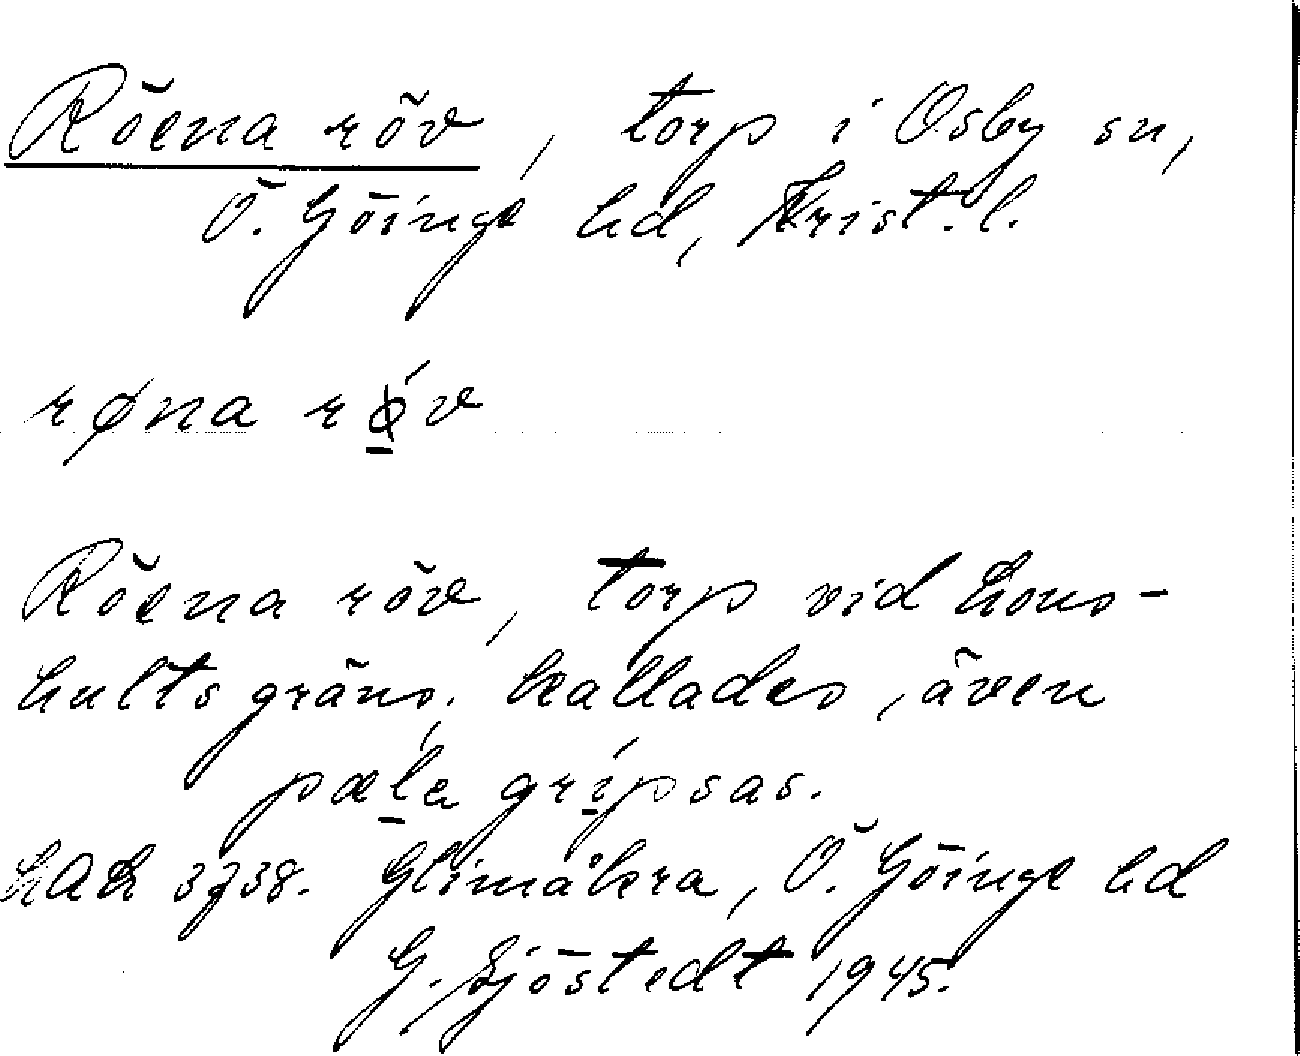 Röena röv, torp i Osby sn,
Ö. Göinge hd, Krist. l.
røna rǿv
Röena röv, torp vid Hons-
hults gräns; kallades, även
pæla grípsas.
LAL 3738. Glimåkra, Ö. Göinge hd
G. Sjöstedt 1945.